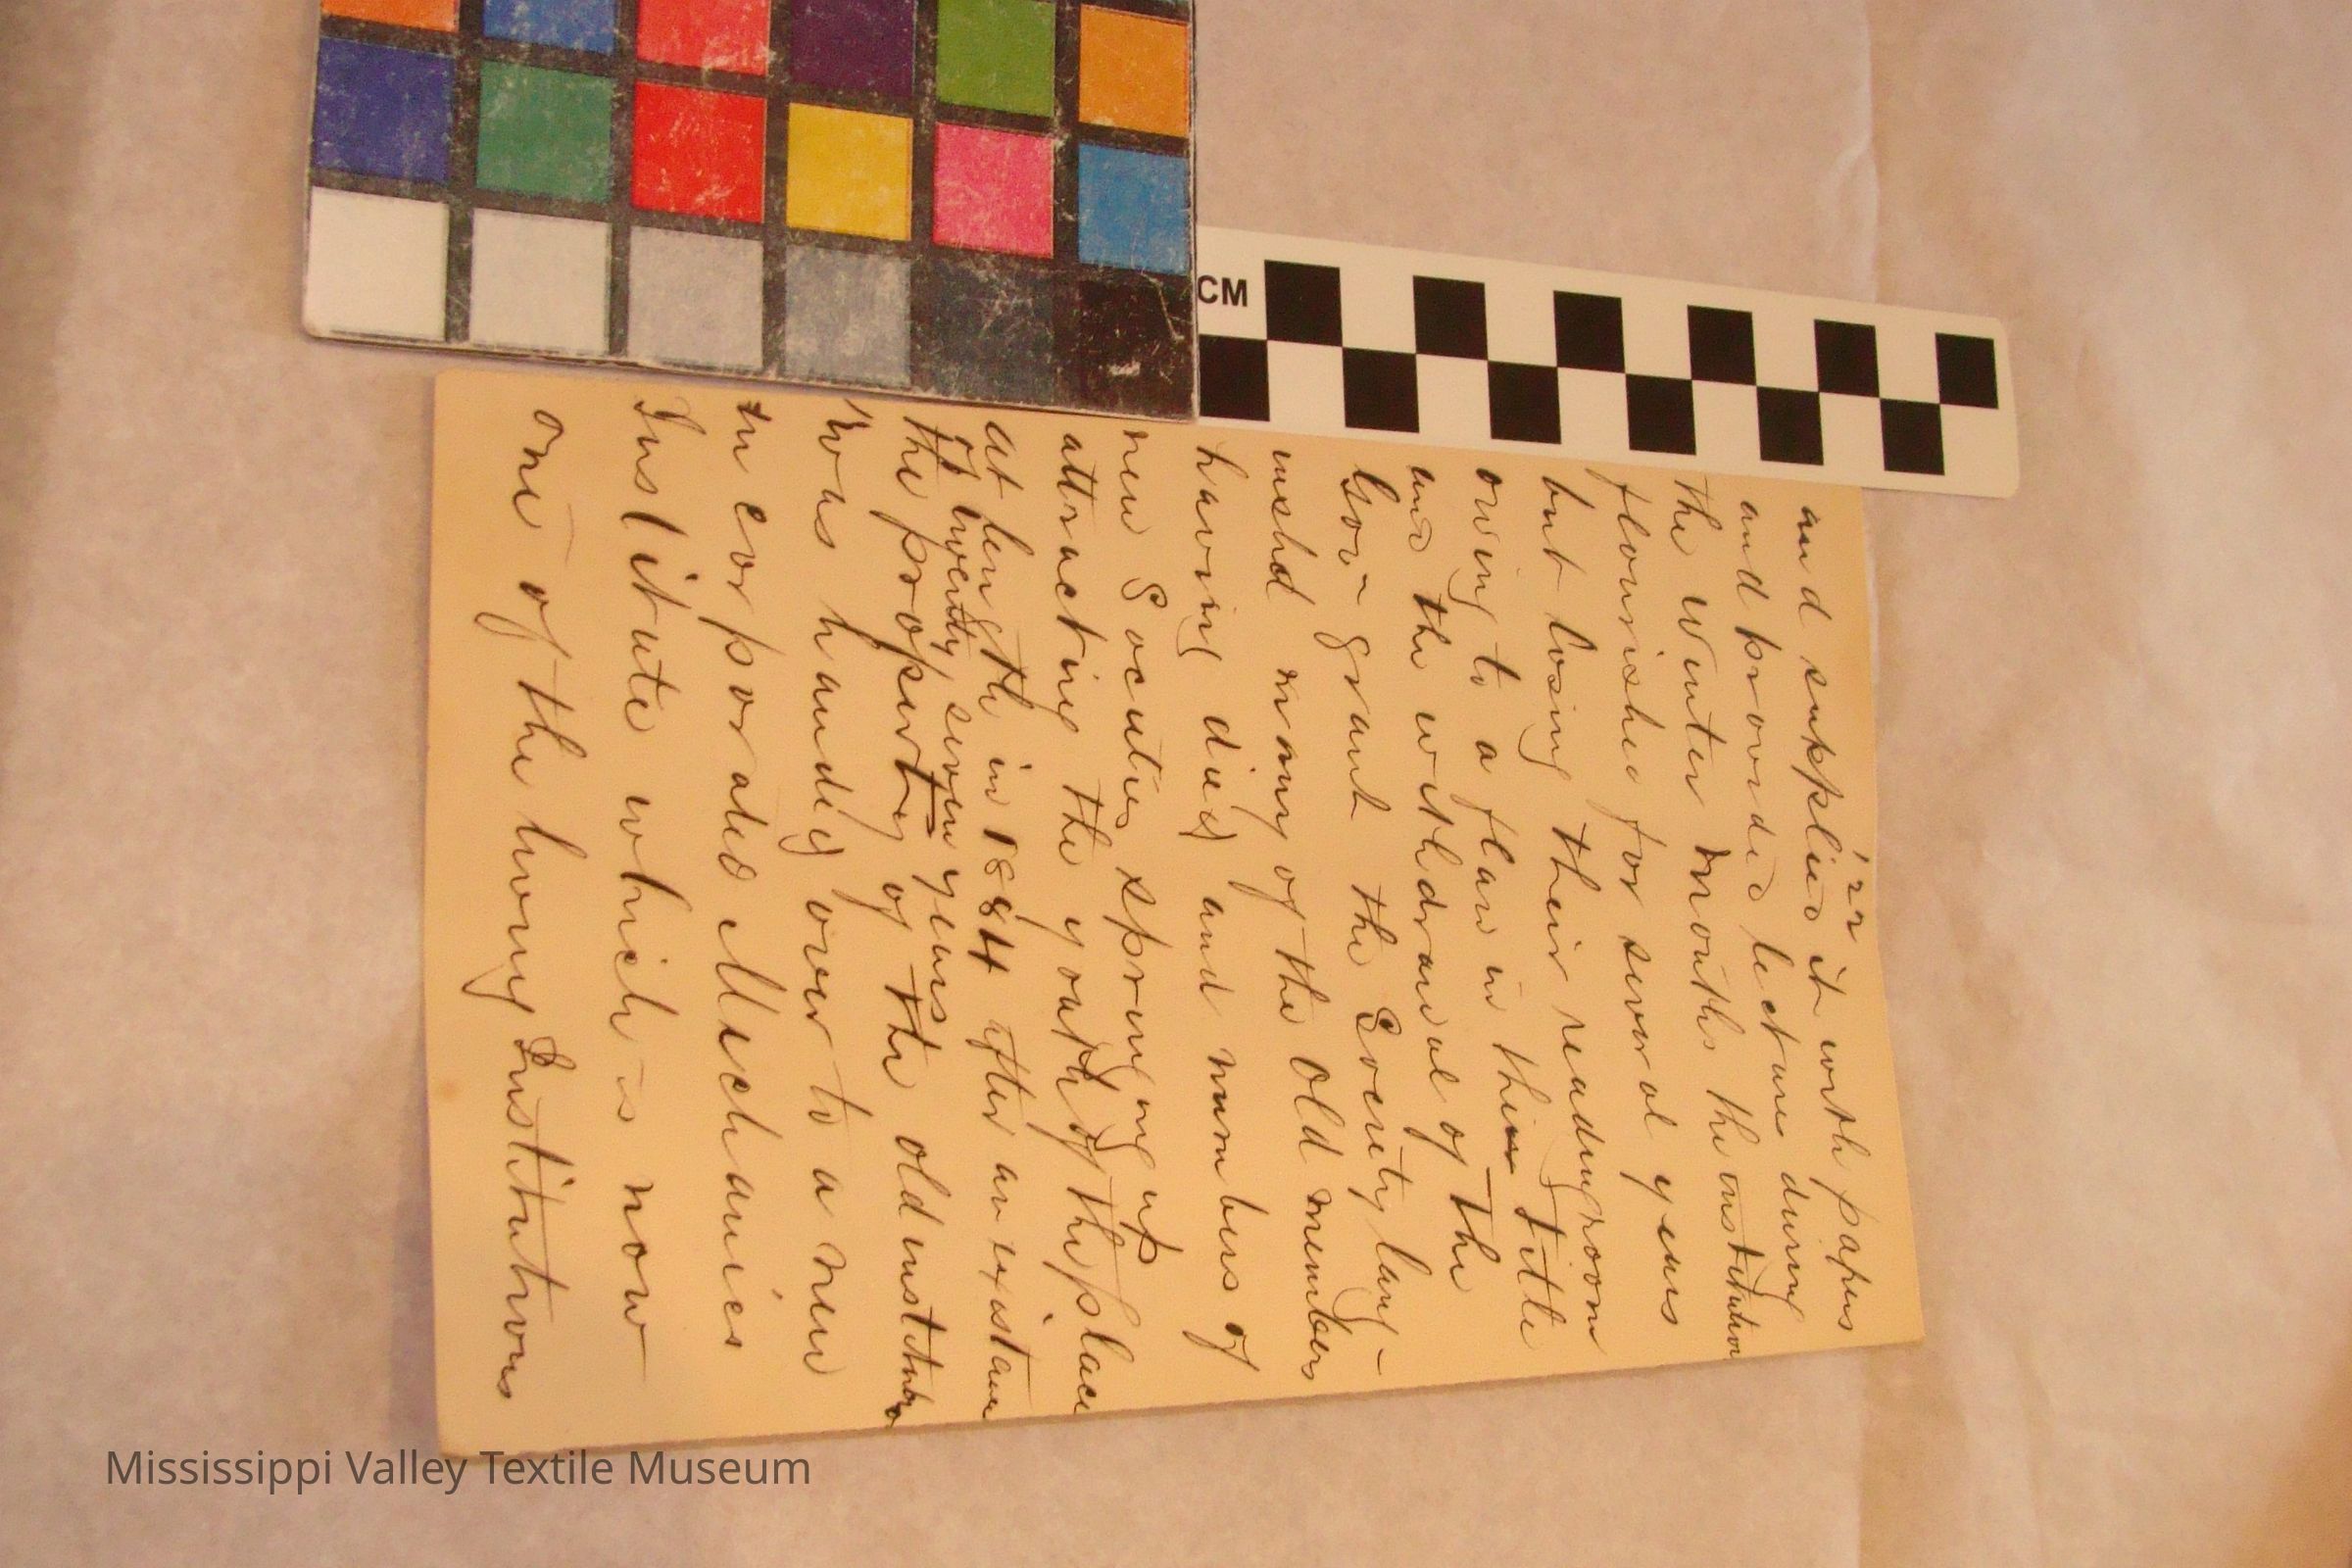 '22
and supplied it with papers
and provided lectures during
the winter months the institution
flourished for several years
but losing their readingroom
owing to a flaw in their title
and the withdrawal of the
Gov- grant the Society lang-
uished many of the old members
having died and numbers of
new Societies springing up
attracting the youth of the place
at length in 1884 after an existance
of twenty seven years
the property of the old institution
was handed over to a new
In corporated Mechanics
Institute which is now
one of the living Institutions
CM
Mississippi Valley Textile Museum